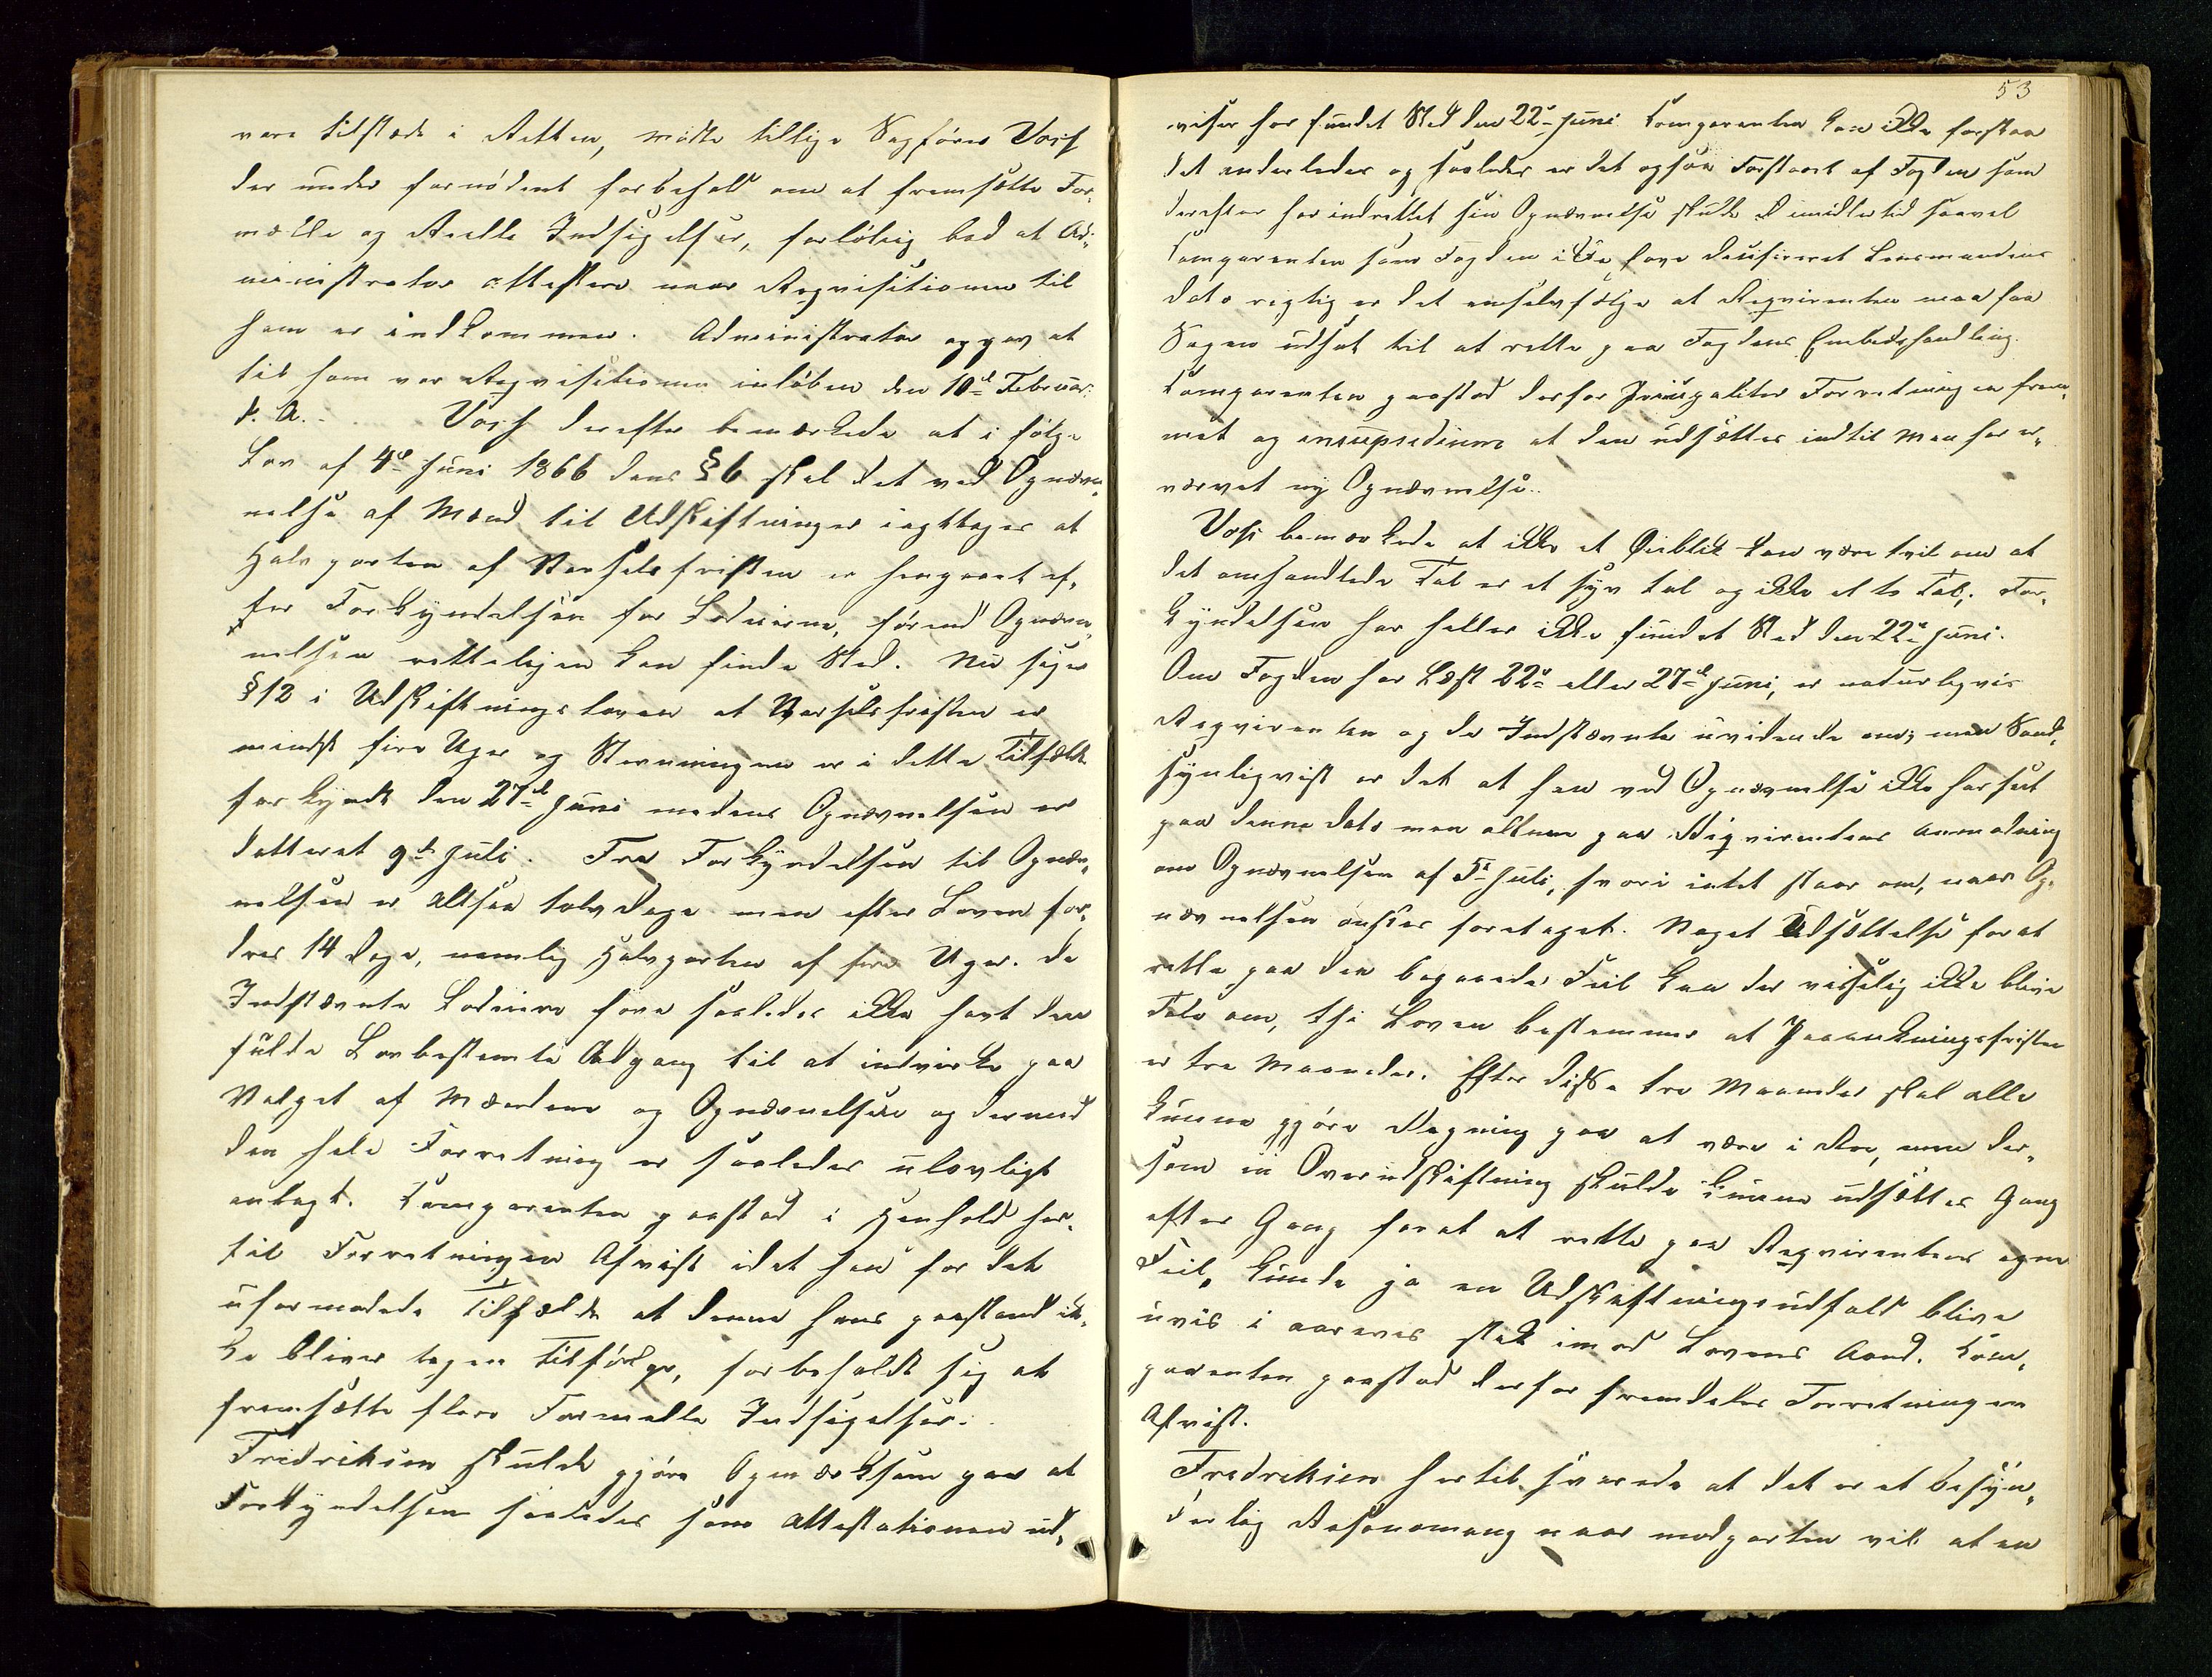 være tilstæde i Retten, mødte tillige Sagfører Vosz
der under fornødent forbehold om at fremsætte For-
mælle og Reelle Indsigelser, forløbig bad at Ad-
ministrator attestere naar Reqvisitionen til
ham er indkommen. Administrator opgav at
til ham var Reqvisitionen inløben den 10de Februar
d. A. Vosz derefter bemærkede at i følge
Lov af 4de Juni 1866 dens § 6 skal det ved Opnæv-
nelse af Mænd til Udskiftninger iagttages at
Halvparten af Varselsfristen er hengaaet ef-
ter Forkyndelsen for Lodeierne, førend Opnæv-
nelsen retteligen kan finde Sted. Nu siger
§ 12 i Udskiftningsloven at Varselsfristen er
mindst fire Uger og Stevningen er i dette Tilfælde
forkyndt den 27de Juni medens Opnævnelsen er
datteret 9de Juli. Fra Forkyndelsen til Opnæv-
nelsen er altsaa tolv dage men efter Loven for-
dres 14 dage, nemlig Halvparten af fire Uger. De
Indstævnte Lodeiere have saaledes ikke havt den
fulde Lovbestemte Adgang til at indvirke paa
Valget af Mændene og Opnævnelsen og dermed
den hele Forretning er saaledes ulovligt
anlagt. Komparenten paastod i Henhold her-
til Forretningen Afvist idet han for det
uformodede Tilfælde at denne hans paastand ik-
ke bliver tagen tilfølge, forbeholdt sig at
fremsætte flere Formelle Indsigelser.
Fridriksen skulde gjøre Opmærksom paa at
Forkyndelsen saaledes som Attestationen ud-
53
viser har fundet Sted den 22de Juni Komparenten kan ikke forstaa
det anderledes og saaledes er det ogsaa Forstaaet af Fogden som
derefter har indrettet sin Opnævnelse skulde imidlertid saavel
Komparenten som Fogden ikke have Lensmandens
dato rigtig er det enselvfølge at Reqvirenten maa faa
Sagen udsat til at rette paa Fogdens Embedshandling.
Komparenten paastod derfor Principaliter Forretningen frem-
met og insupsedium at den udsættes indtil man har er-
værvet ny Opnævnelse..
Vosz bemærkede at ikke et Øieblik kan være tvil om at
det omhandlede Tal er et syv tal og ikke et to Tal; For-
kyndelsen har heller ikke fundet Sted den 22de Juni.
Om Fogden har Læst 22de eller 27de Juni, er naturligvis
Reqvirenten og de Indstævnte uvidende om; men Sand-
synligvist er det at han ved Opnævnelse ikke har seet
paa denne dato men alene paa Reqvirentens anmodning
om Opnævnelsen af 5te Juli, hvori intet staar om, naar Op-
nævnelsen ønskes foretaget. Noget Udsættelse for at
rette paa den begaaede Feil kan der visselig ikke blive
Tale om, thi Loven bestemmer at Paaankningsfristen
er tre Maaneder. Efter disse tre Maaneder skal alle
kunne gjøre Regning paa at være i Ro, men der-
som en Overudskiftning skulde kunne udsættes Gang
efter Gang for at at rette paa Reqvirentens egen
Feil, kunde jo en Udskiftningsudfald blive
uvis i aarevis stik imod Lovens Aand. Kom-
parenten paastod derfor fremdeles Forretningen
Afvist.
Fredriksen hertil svarede at det er et besyn-
derlig Resonomang naar modparten vil at en